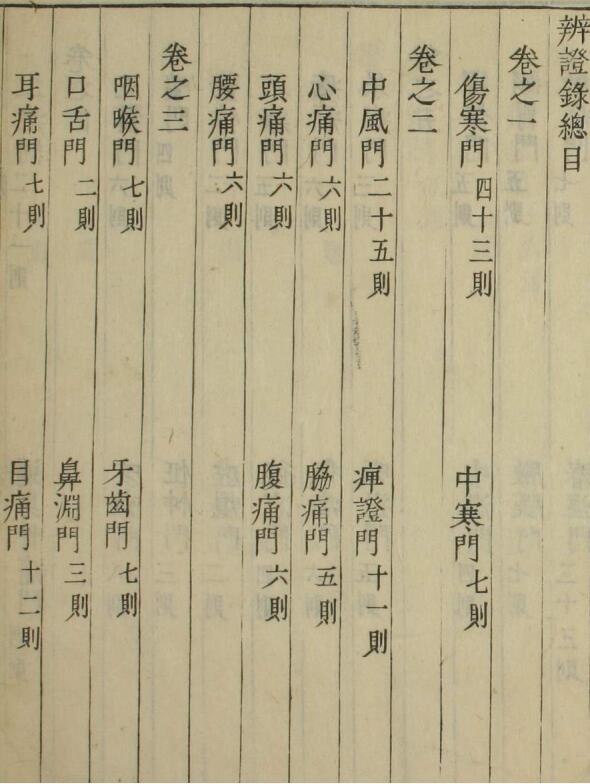 辨證錄總目
卷之一
傷寒門四十三則　中寒門七則
卷之二
中風門二十五則　痺證門十一則
心痛門六則　脇痛門五則
頭痛門六則　腹痛門六則
腰痛門六則
卷之三
咽喉門七則　牙齒門七則
口舌門二則　鼻淵門三則
耳痛門七則　目痛門十二則